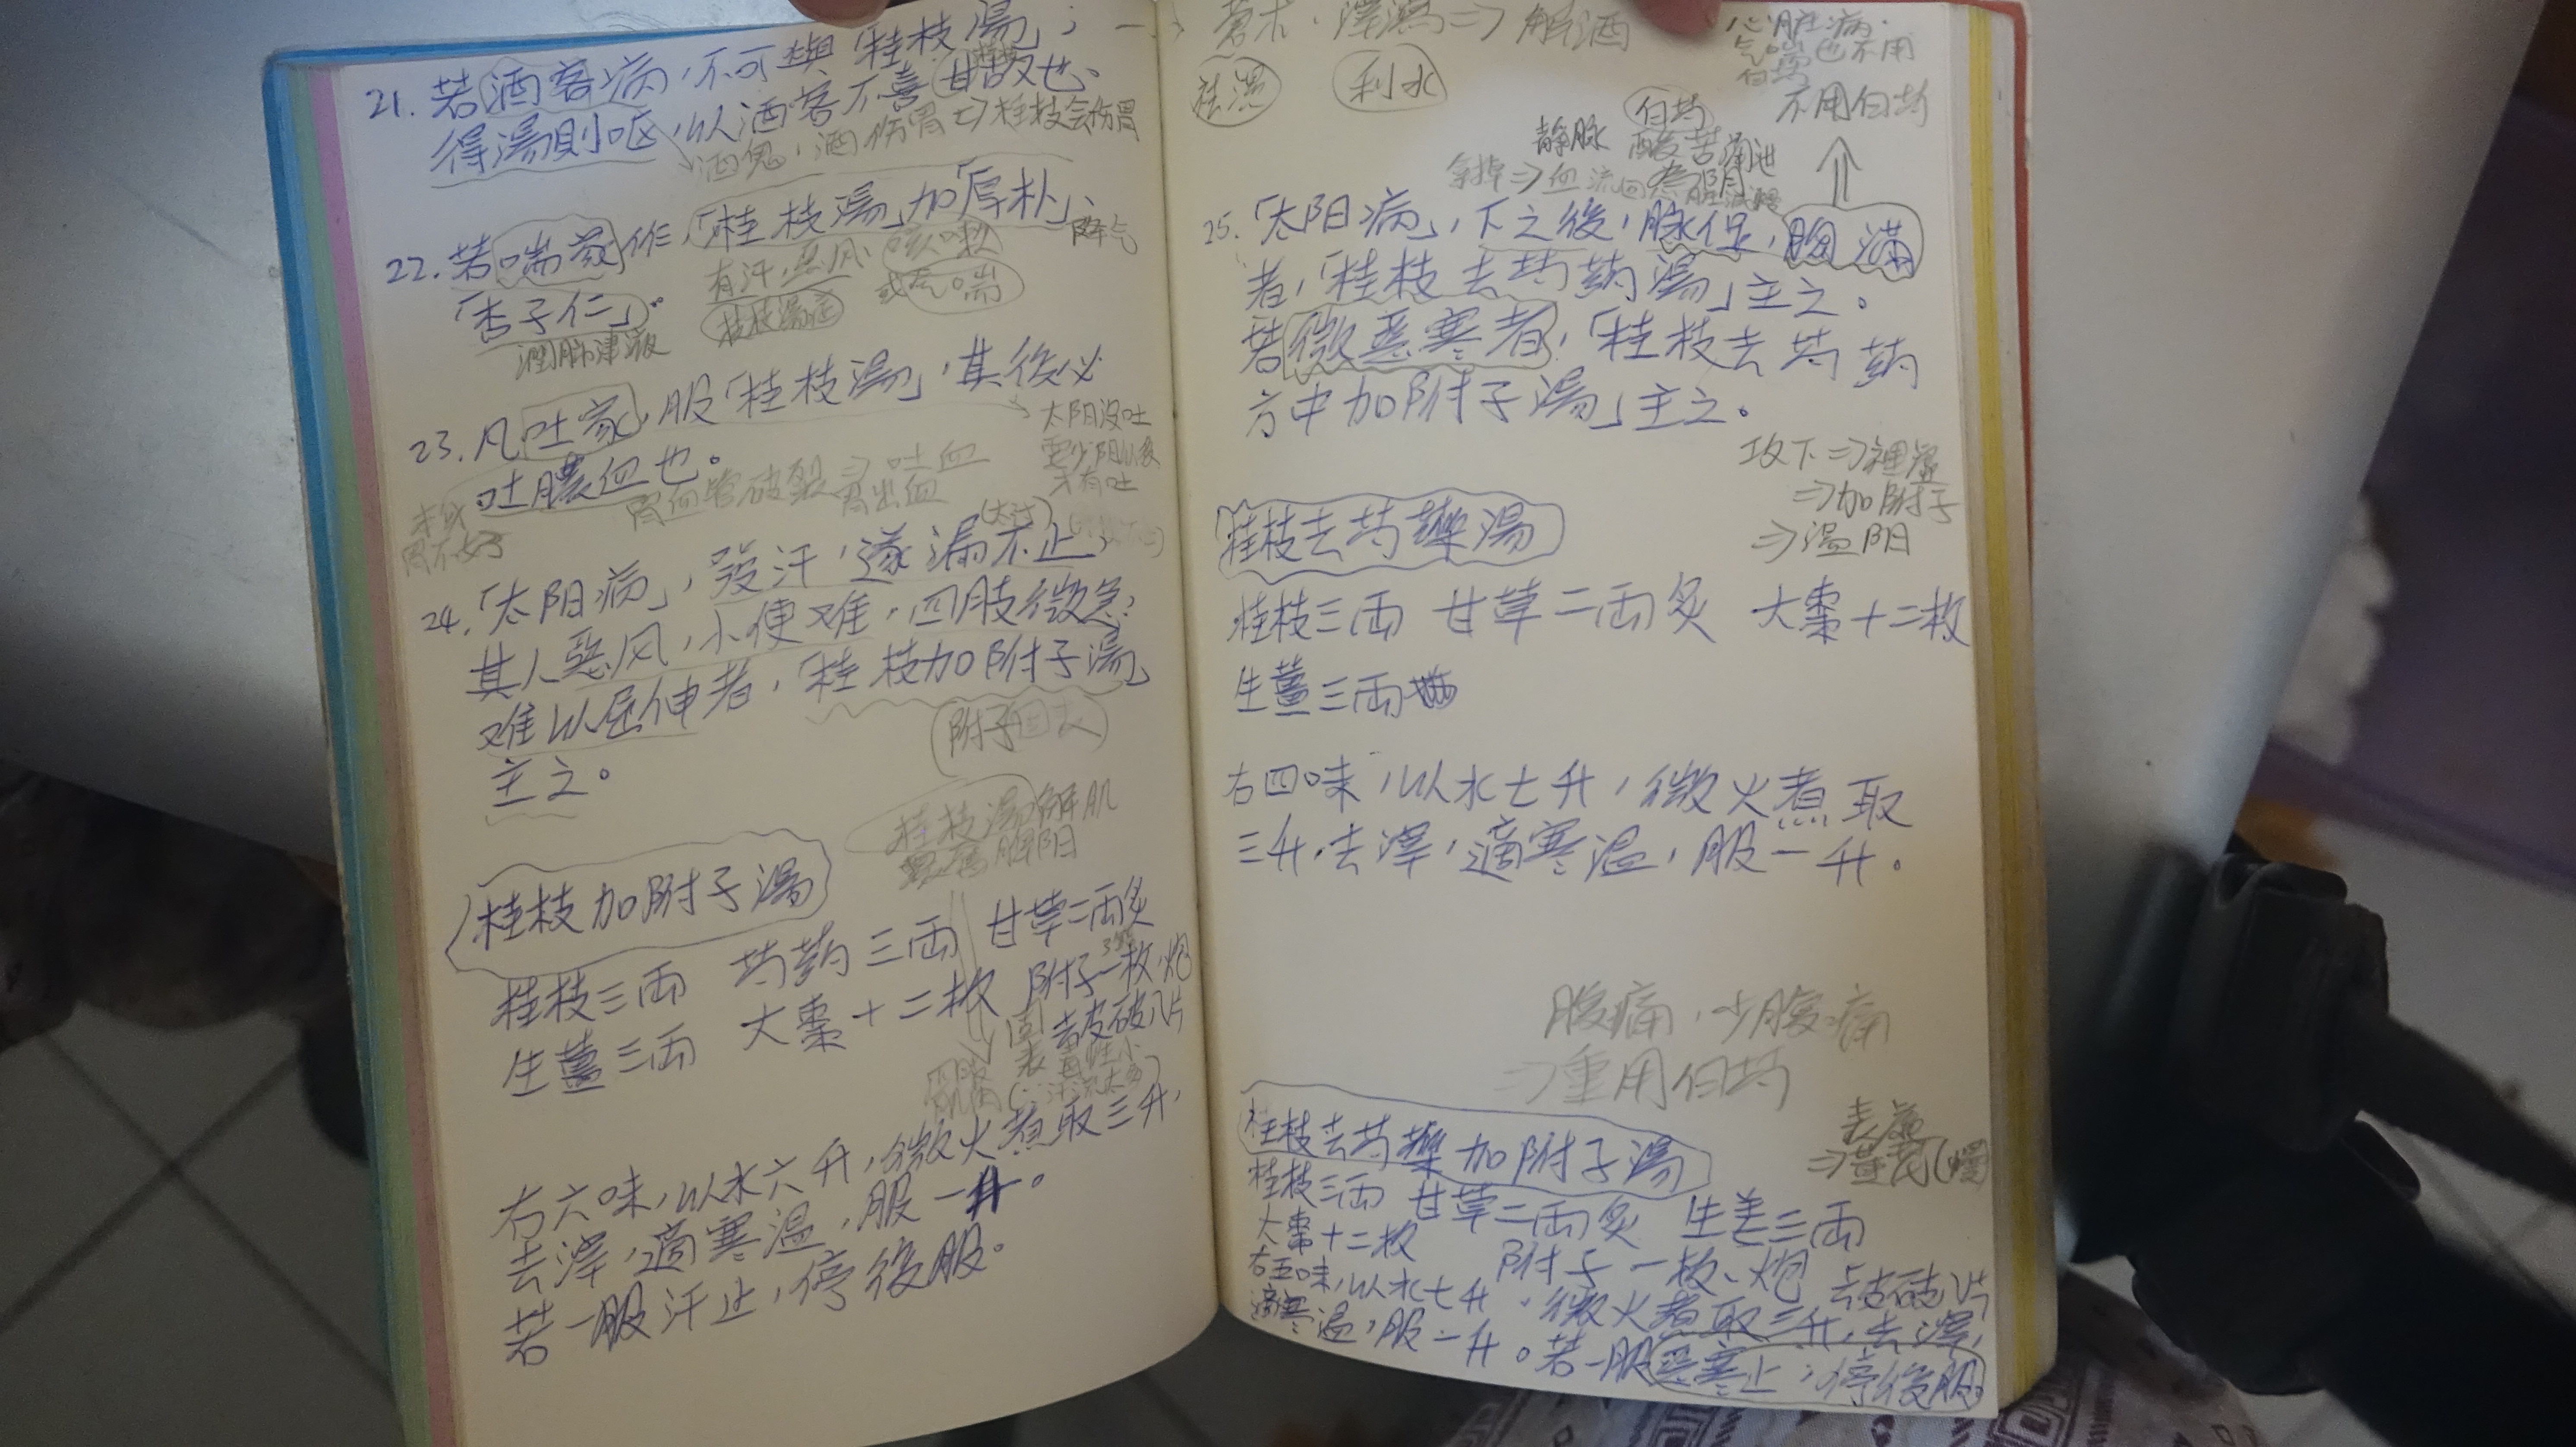 21. 若酒客病，不可與「桂枝湯」；
得湯則嘔，以酒客不喜甘故也。
酒鬼，酒伤胃⇒桂枝会伤胃
22. 若喘家作，「桂枝湯」加「厚朴」、
降气
「杏子仁」。
有汗，恶风，咳嗽
或气喘
桂枝湯症
潤肺津液
23. 凡吐家，服「桂枝湯」，其後必
吐膿血也。
太阳没吐
要少阳以後
才有吐
胃血管破裂⇒吐血
胃出血
本身
胃不好
24.「太阳病」，發汗，遂漏不止，
其人恶风，小便难，四肢微急，
难以屈伸者，「桂枝加附子湯」
主之。
附子固表
桂枝湯解肌
桂枝加附子湯
桂枝三两 芍药三两 甘草二两炙
生薑三两 大棗十二枚 附子一枚，炮
去皮破八片
固
表 毒性小
右六味，以水六升，微火煮取三升，
去滓，適寒温，服一升。
若一服汗止，停後服。
蒼朮．澤瀉⇒解酒
祛湿
利水
心脏病．
气喘也不用
白芍
不用白芍
白芍
静脉 酸苦涌泄
為阴
25.「太阳病」，下之後，脉促，胸滿
者，「桂枝去芍药湯」主之。
若微恶寒者，「桂枝去芍药
方中加附子湯」主之。
攻下⇒裡虛
⇒加附子
⇒温阳
桂枝去芍藥湯
桂枝三两 甘草二两炙 大棗十二枚
生薑三两
右四味，以水七升，微火煮取
三升，去滓，適寒温，服一升。
腹痛，少腹痛
⇒重用白芍
表虛
桂枝去芍藥加附子湯
桂枝三两 甘草二两炙 生姜三两
大棗十二枚 附子一枚、炮 去皮破八片
右五味，以水七升，微火煮取三升，去滓，
適寒温，服一升。若一服恶寒止，停後服。